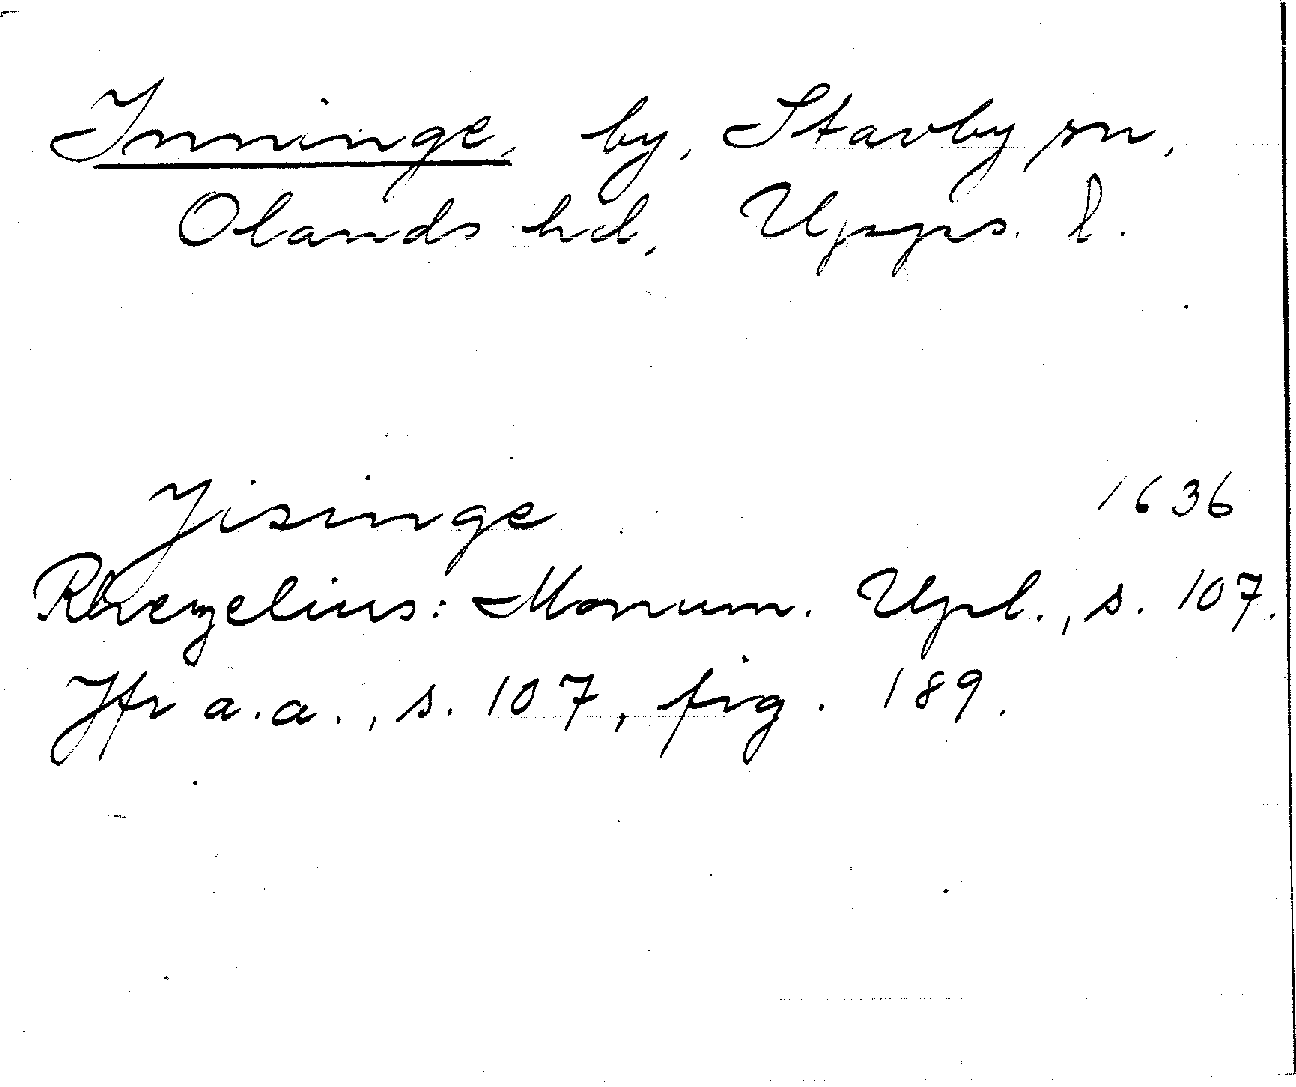 Inninge, by, Stavby sn,
Olands hd, Upps. l.
Jisinge 1636
Rhezelius: Monum. Upl., s. 107.
Jfr a.a., s. 107, fig. 189.